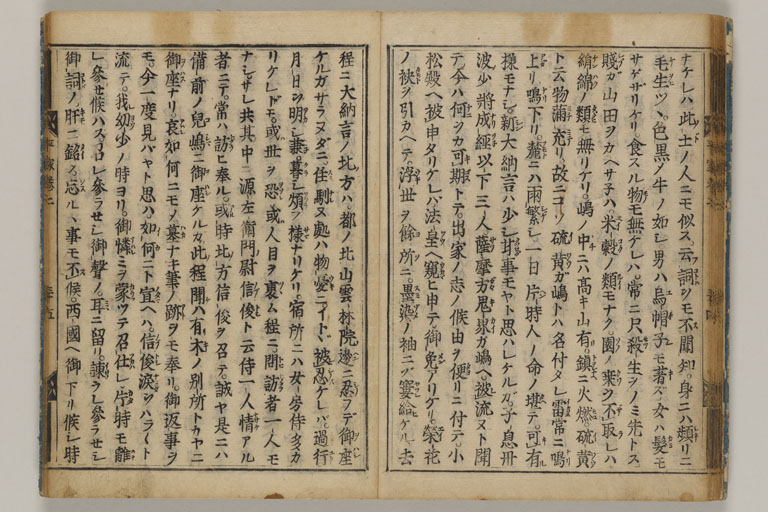 ナケレハ此土ノ人ニモ似ス。云詞ヲモ不聞知。身ニハ頻リニ
毛生ツヽ色黒ノ牛ノ如シ男ハ烏帽子モ著ス。女ハ髪モ
サゲザリケリ食スル物モ無ケレハ。常ニ只殺生ヲノミ先トス
賤ガ山田ヲカヘサ子ハ米穀ノ類モナク。園ノ桒ヲ不取レハ
絹綿ノ類モ無リケリ。嶋ノ中ニハ高キ山有。鎮ニ火燃硫黄
ト云物満充リ。故ニコソ硫黄ガ嶋トハ名付タレ雷常ニ鳴
上リ鳴下リ。麓ニハ雨繁シ一日片時人ノ命ノ堪テ可有
様モナシ。新大納言ハ少シ甘事モヤト思ハレケルガ。子息丹
波少将成經以下三人薩摩方鬼界ガ嶋ヘ被流ヌト聞
テ。今ハ何ヲカ可期トテ。出家ノ志ノ候由ヲ便リニ付テ小
松殿ヘ被申タリケレハ法皇ヘ窺ヒ申テ御免アリケリ。榮花
ノ袂ヲ引カヘテ。浮世ヲ餘所ニ墨染ノ袖ニゾ窶給ケル去
程ニ大納言ノ北方ハ都ノ北山雲林院邊ニ忍ヲテ御座
ケルガサラヌダニ住馴ヌ處ハ物憂ニイトヾ被忍ケレバ。過行
月日ヲ明シ兼。暮シ煩フ様ナリケリ。宿所ニハ女房侍多カ
リケレドモ。或ハ世ヲ恐或人目ヲ裹ム程ニ。問訪者一人モ
ナシ。サレ共其中ニ源左衛門尉信俊ト云侍一人情アル
者ニテ。常ハ訪ヒ奉ル。或時北方信俊ヲ召テ。誠ヤ是ニハ
備前ノ兒嶋ニ御座ケルガ此程聞ハ有木ノ別所トカヤニ
御座ナリ。哀如何ニモノ墓ナキ筆ノ跡ヲモ奉リ。御返事ヲ
モ。今一度見バヤト思ハ如何ニト宣ヘハ。信俊涙ヲハラ〳〵ト
流テ。我幼少ノ時ヨリ。御憐ミヲ蒙ツテ召仕レ片時モ離
レ參セ候ハス。召レ參ラセシ御聲ノ。耳ニ留リ。諫ラレ參ラセシ
御詞ノ肝ニ銘シ忘ルヽ事モ不候。西國ヘ御下リ候シ時